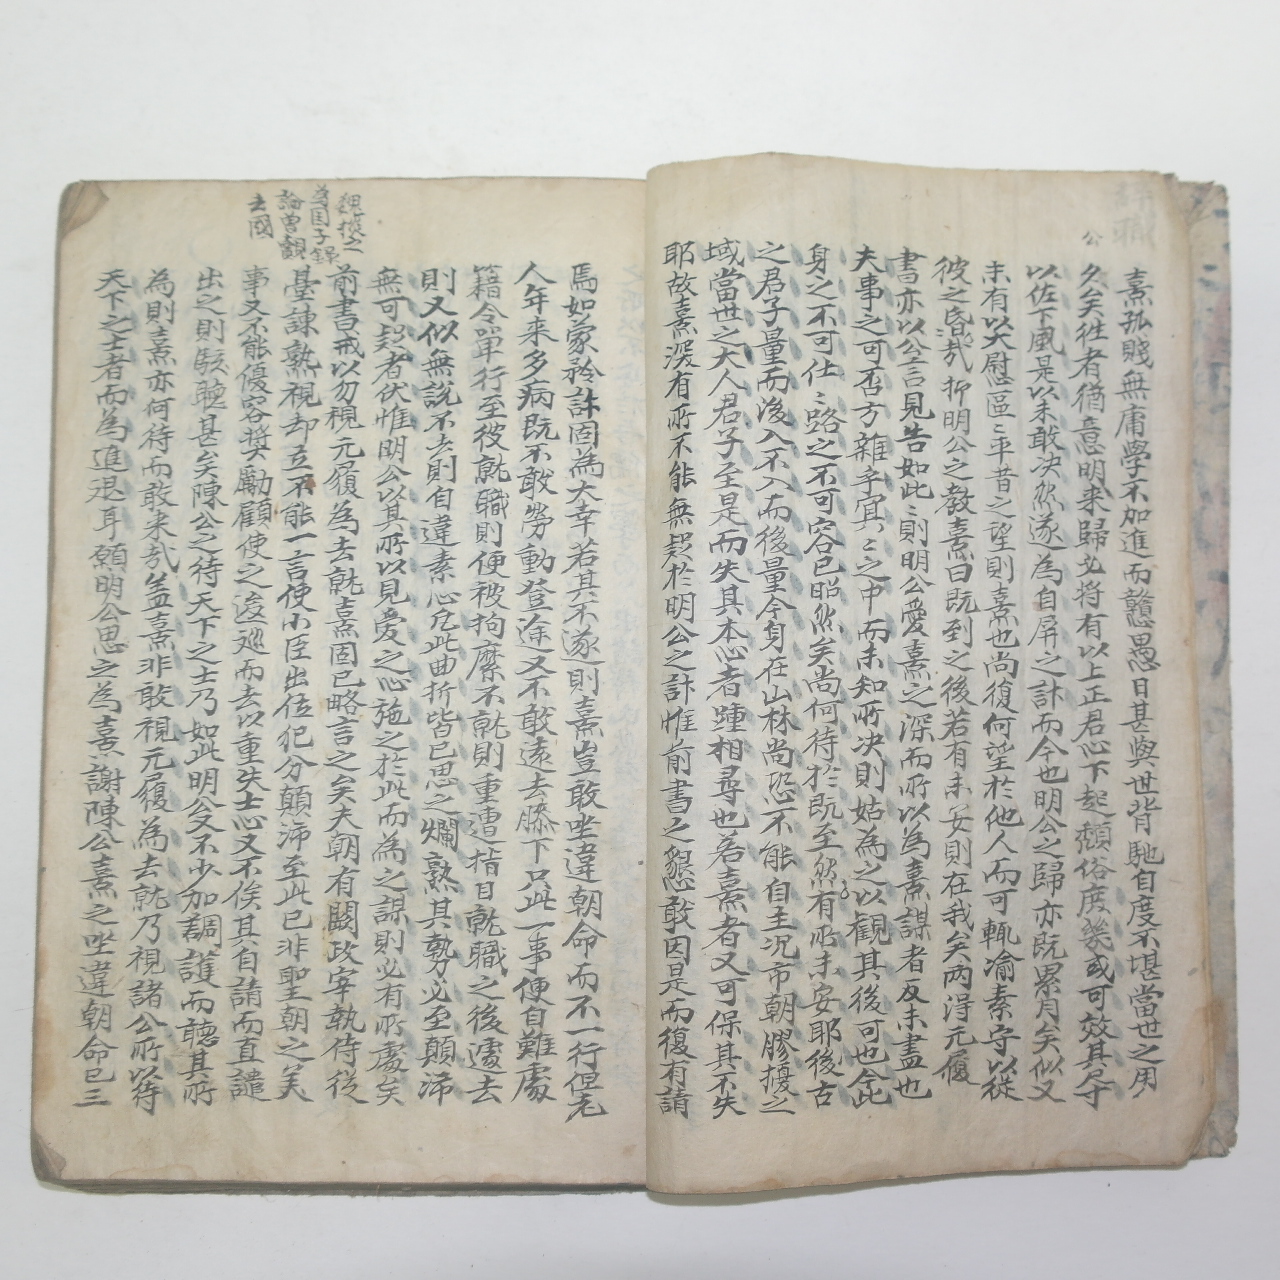 辭職
公
熹孤賤無庸學不加進而戇愚日甚與世背馳自度不堪當世之用
久矣往者猶意明來歸必將有以上正君心下起頹俗庶幾或可效其尺寸
以佐下風是以未敢决然遂為自屏之計而今也明公之歸亦既累月矣似又
未有以大慰區〻平昔之望則熹也尚復何望於他人而可輒渝素守以從
彼之昏哉抑明公之教熹曰既到之後若有未安則在我矣兩得元履
書亦以公言見告如此〻則明公愛熹之深而所以為熹謀者反未盡也
夫事之可否方雜乎冥〻之中而未知所决則姑為之以觀其後可也今此
身之不可仕〻路之不可容已昭然矣尚何待於既至然有所未安耶後古
之君子量而後入不入而後量今身在山林尚恐不能自主况市朝膠擾之
域當世之大人君子至是而失其本心者踵相尋也若熹者又可保其不失
耶故熹深有所不能無疑於明公之計惟前書之懇敢因是而復有請
焉如蒙矜許固為大幸若其不遂則熹豈敢坐違朝命而不一行但老
人年来多病既不敢勞動登途又不敢遠去膝下只此一事便自難處
籍令單行至彼就職則便被拘縻不就則重遭指目就職之後遽去
則又似無說不去則自違素心凡此曲折皆已思之爛熟其勢必至顛沛
無可疑者伏惟明公以其所以見愛之心施之於此而為之謀則必有所處矣
前書戒以勿視元履為去就熹固已略言之矣夫朝有闕政宰執侍從
臺諫熟視却立不能一言使小臣出位犯分顛沛至此已非聖朝之美
事又不能優容奬勵顧使之逡巡而去以重失士心又不俟其自請而直譴
出之則駭聽甚矣陳公之待天下之士乃如此明公又不少加調護而聽其所
為則熹亦何待而敢来哉盖熹非敢視元履為去就乃視諸公所以待
天下之士者而為進退耳願明公思之為熹謝陳公熹之坐違朝命已三
魏掞之
為国子録
論曾覿
去國